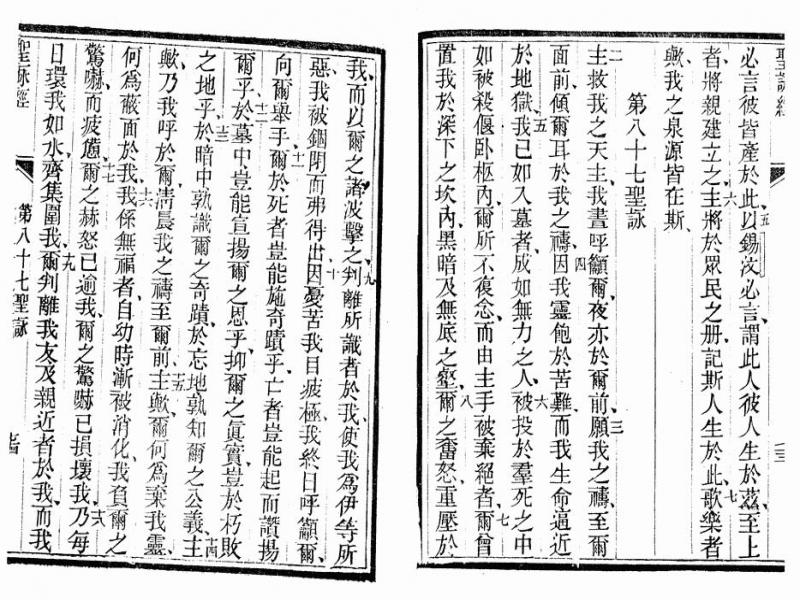 聖詠經
必言彼皆產於此以錫汝必言謂此人彼人生於茲至上
五 六 七
者將親建立之主將於眾民之册記斯人生於此歌樂者
歟我之泉源皆在斯
第八十七聖詠
二 主救我之天主我晝呼籲爾夜亦於爾前願我之禱至爾
三
面前傾爾耳於我之禱因我靈飽於苦難而我生命逼近
四
於地獄我已如入墓者成如無力之人被投於羣死之中
五 六
如被殺偃卧柩內爾所不復念而由主手被棄絕者爾曾
七
置我於深下之坎內黑暗及無底之壑爾之奮怒重壓於
八
我而以爾之諸波擊之判離所識者於我使我為伊等所
九
惡我被錮閉而弗得出因憂苦我目疲極我終日呼籲爾
十
向爾舉手爾於死者豈能施奇蹟乎亡者豈能起而讚揚
十一
爾乎於墓中豈能宣揚爾之恩乎抑爾之真實豈於朽敗
十二
之地乎於暗中孰識爾之奇蹟於忘地孰知爾之公義主
十三 十四
歟乃我呼於爾清晨我之禱至爾前主歟爾何為棄我靈
十五
何為蔽面於我我係無福者自幼時漸被消化我負爾之
十六
驚嚇而疲憊爾之赫怒已逾我爾之驚嚇已損壞我乃每
十七 十八
日環我如水齊集圍我爾判離我友及親近者於我而我
十九
聖詠經
第八十七聖詠